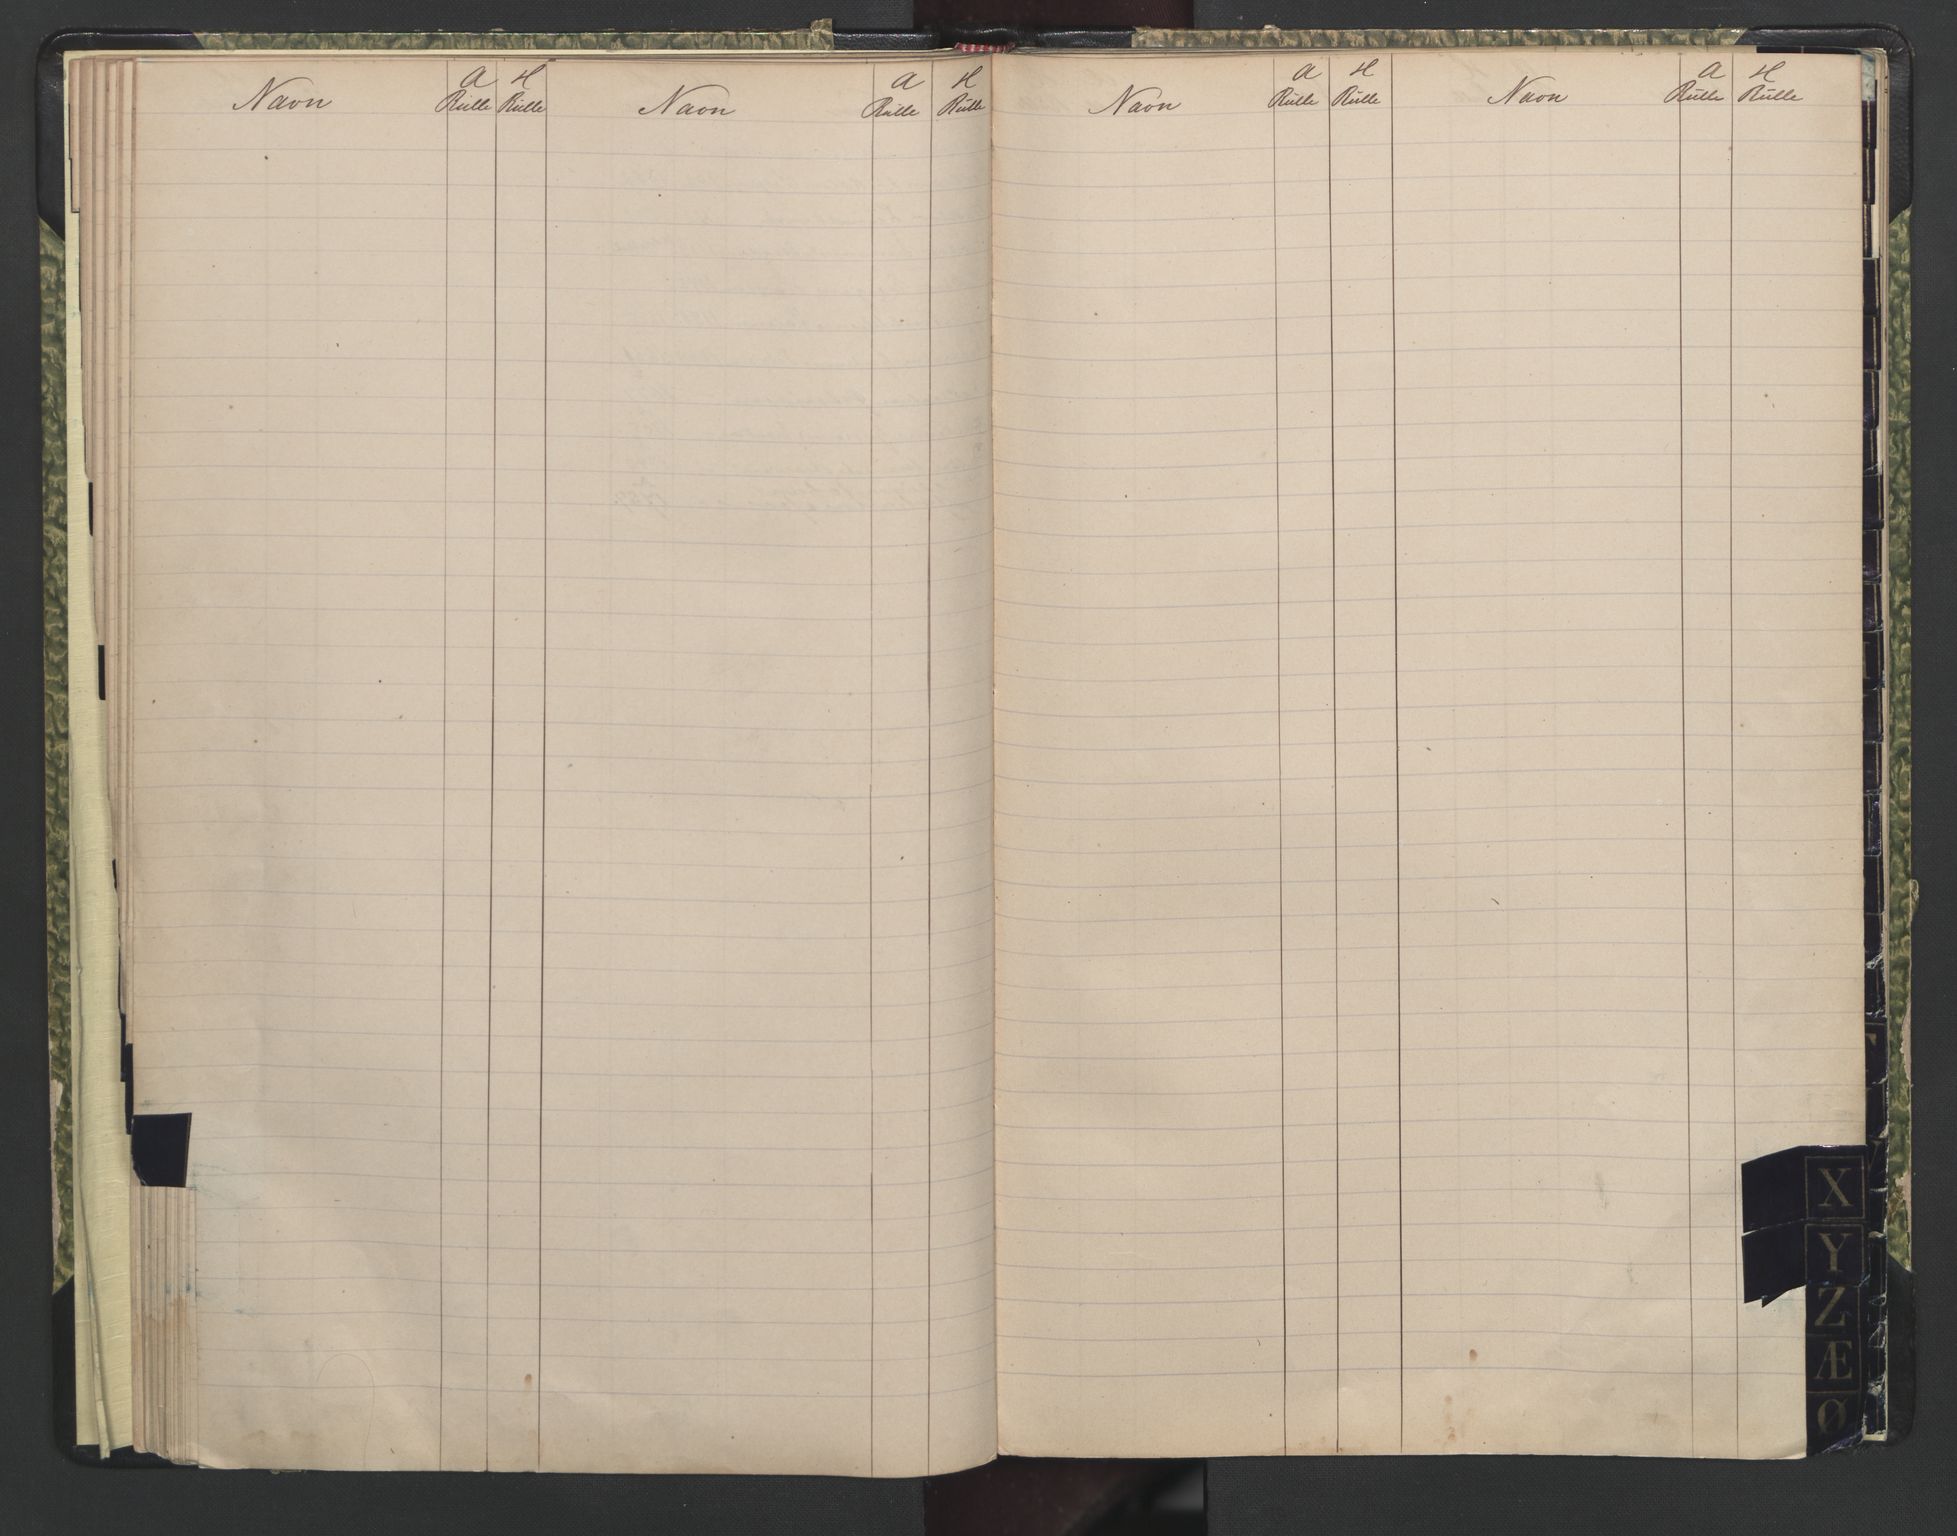 Navn A Rulle H Rulle Navn A Rulle H Rulle
Navn A Rulle H Rulle Navn A Rulle H Rulle
X
Y
Z
Æ
Ø